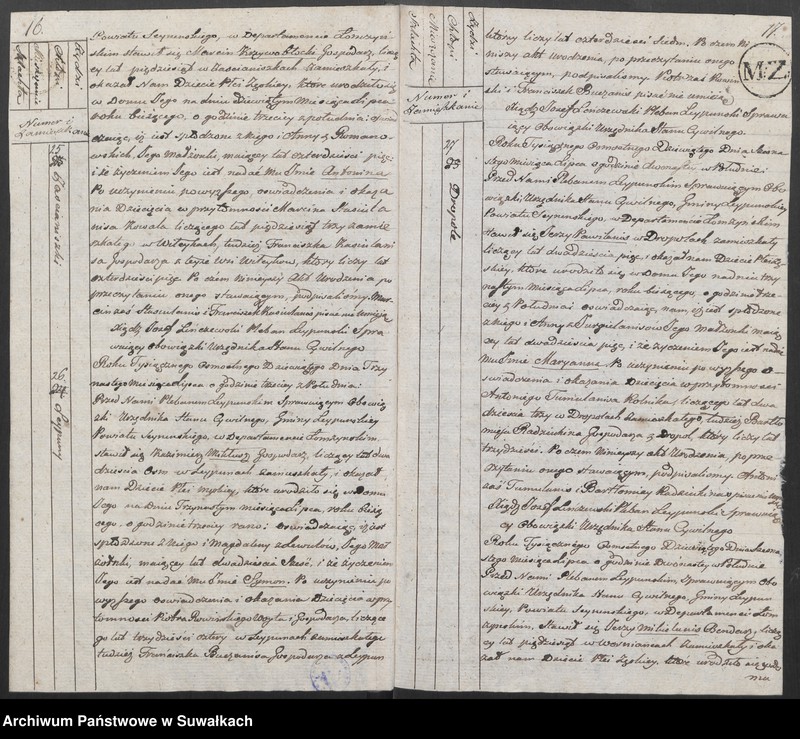 16.
Żydzi
Chłopi
Mieszczanie
Szlachta
Numer i
Zamieszkanie
25
Kasciaszki
26
Leypuny
Powiatu Seynenskiego, w Departamencie Łomżyn-
skiem stawił się Marcin Krzywobłocki Gospodarz, liczą-
cy lat pięćdziesiąt w zamieszkały, i
okazał Nam Dziecie Płci Żęskiey, które urodziło się
w Domu Jego na dniu Dziewiątym Miesiąca Lipca
roku bieżącego, o godzinie trzeciey z południa
iż iest spłodzone z Niego i Anny z Romano-
wskich, Jego Małżonki, maiącey lat czterdzieści pięć
i że życzeniem Jego iest nadać mu Jmie Antonina
Po uczynieniu powyższego, oswiadczenia i okaza-
nia Dziecięcia w przytomności Marcina Stasiula-
nisa liczącego lat pięćdziesiąt trzy zamie-
szkałego w Wiłeykach, tudzież Franciszka Kasiulani-
sa Gospodarza z teyże Wsi Wiłeykow, który liczy lat
czterdzieści pięć Po czem Ninieyszy Akt Urodzenia po
przeczytaniu onego stawaiącym, podpisaliśmy Mar-
cin zaś Stasiulanis i Franciszek Kasiulanis pisać nie umieią
Xiądz Jozef Linczewski Pleban Leypunski Spra-
wuiący Obowiązki Urzędnika Stanu Cywilnego
Roku Tysiącznego Osmsetnego Dziewiątego Dnia Trzy-
nastego Miesiąca Lipca o godzinie trzeciey z Południa
Przed Nami Plebanem Leypunskim Sprawuiącym Obowią-
zki Urzędnika Stanu Cywilnego, Gminy Leypunskiey
Powiatu Seynenskiego, w Departamencie Łomżynskim
stawił się Kazimierz Milikusz Gospodarz, liczący lat dwa-
dziescia Osm w Leypunach zamieszkały, i okazał
nam Dziecie Płci męzkiey, które urodziło się w Domu
Jego na dniu Trzynastym miesiąca Lipca, roku bieżą-
cego, o godzinie rano: oswiadczaiąc, iż iest
spłodzone z Niego i Magdaleny z Lewulow, Jego Mał-
żonki, maiącey lat dwadziescia Sześć, i że życzeniem
Jego iest nadać mu Jmie Szymon. Po uczynieniu po-
wyższego oswiadczenia i okazania Dziecięcia w przy-
tomności Piotra Wóyta i Gospodarza, liczące-
go lat trzydziesci cztery w Leypunach zamieszkałego
tudzież Franciszka Buczanisa Gospodarza z Leypun
17.
M.Z.
Żydzi
Chłopi
Mieszczanie
Szlachta
Numer i
Zamieszkanie
27
Dropole
który liczy lat czterdzieści Siedm, Po czem Ni-
nieyszy akt urodzenia, po przeczytaniu onego
stawaiącym, podpisaliśmy Piotr zaś
ski i Franciszek Buczanis pisać nie umieią
Xiądz Jozef Linczewski Pleban Leypunski Sprawu-
iący Obowiązki Urzędnika Stanu Cywilnego.
Roku Tysiącznego Osmsetnego Dziewiątego Dnia Szesna-
stego miesiąca Lipca o godzinie dwunastey w Południe:
Przed Nami Plebanem Leypunskim Sprawuiącym Obo-
wiązki Urzędnika Stanu Cywilnego, Gminy Leypunskiey
Powiatu Seynenskiego, w Departamencie Łomżynskim
stawił się Jerzy Nawilanis w Dropolach zamieszkały
liczący lat dwadziescia pięć i okazał nam Dziecie Płci żę-
skiey, które urodziło się w Domu Jego na dniu trzy-
nastym miesiąca Lipca, roku bieżącego, o godzinie trze-
ciey z Południa: oswiadczaiąc, nam, iż iest spłodzone
z Niego i Anny z Surpielanisow Jego Małżonki maią-
cey lat dwadziescia pięć, i że życzeniem Jego iest nadać
mu Jmie Maryanna. Po uczynieniu powyższego o-
swiadczenia i okazania Dziecięcia w przytomności
Antoniego Tumulanisa Rolnika, liczącego lat dwa-
dziescia trzy w Dropolach zamieszkałego, tudzież Bartło-
mieja Radziukina Gospodarza z Dropol, który liczy lat
trzydziesci. Po czem Ninieyszy akt Urodzenia, po prze-
czytaniu onego stawaiącym, podpisaliśmy Antoni
zaś Tumulanis i Bartłomiey Radziukinas pisać nie umieią
Xiądz Jozef Linczewski Pleban Leypunski Sprawuią-
cy Obowiązki Urzędnika Stanu Cywilnego
Roku Tysiącznego Osmsetnego Dziewiątego Dnia Szesna-
stego miesiąca Lipca o godzinie Dwunastey w Południe
Przed Nami Plebanem Leypunskim, Sprawuiącym Obo-
wiązki Urzędnika Stanu Cywilnego, Gminy Leypun-
skiey, Powiatu Seynenskiego, w Departamencie Łom-
żynskim, Stawił się Jerzy Milielunis Bendarz, liczą-
cy lat pięćdziesiąt w zamieszkały i oka-
zał nam Dziecie Płci Żęskiey, które urodziło się w do-
mu
Archiwum Państwowe w Suwałkach